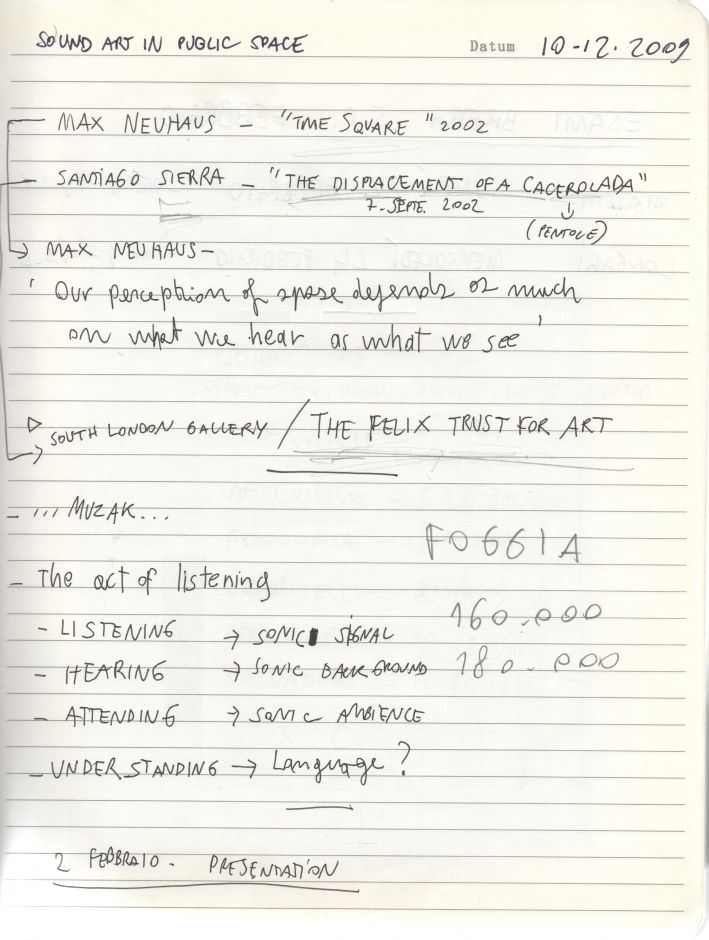 SOUND ART IN PUBLIC SPACE Datum 10-12.2009
MAX NEUHAUS - "TIME SQUARE" 2002
- SANTIAGO SIERRA - "THE DISPLACEMENT OF A CACEROLADA"
7-SEPTE. 2002
(PENTOLE)
MAX NEUHAUS -
' Our perception of spase depends as much
on what we hear as what we see '
SOUTH LONDON GALLERY / THE FELIX TRUST FOR ART
- ... MUZAK...
F0661A
- The act of listening
160.000
- LISTENING → SONIC SIGNAL
- HEARING → SONIC BACKGROUND 180.000
- ATTENDING → SONIC AMBIENCE
- UNDERSTANDING → Language?
2 FEBBRAIO - PRESENTATION